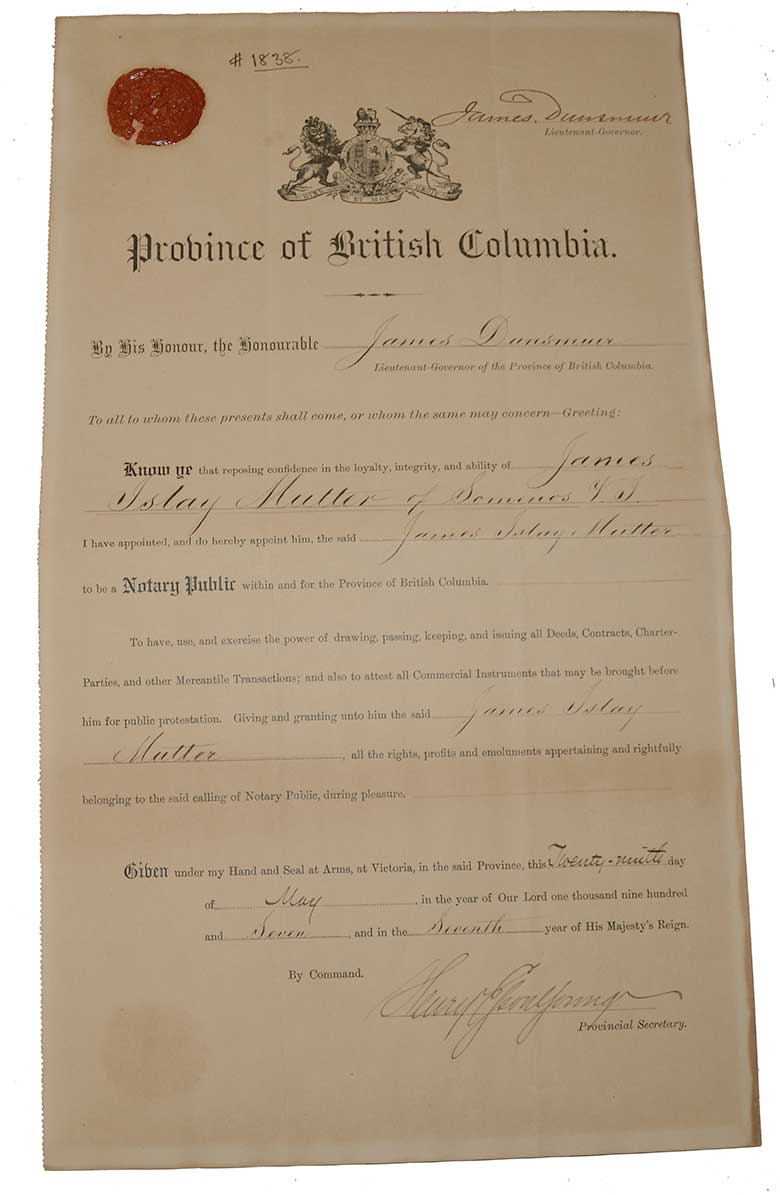 # 1838.
James Dunsmuir
Lieutenant-Governor.
DIEU ET MON DROIT
Province of British Columbia.
By His Honour, the Honourable James Dunsmuir
Lieutenant-Governor of the Province of British Columbia.
To all to whom these presents shall come, or whom the same may concern—Greeting:
Know ye that reposing confidence in the loyalty, integrity, and ability of James
Islay Mutter of Somenos V.I.
I have appointed, and do hereby appoint him, the said James Islay Mutter
to be a Notary Public within and for the Province of British Columbia.
To have, use, and exercise the power of drawing, passing, keeping, and issuing all Deeds, Contracts, Charter-
Parties, and other Mercantile Transactions; and also to attest all Commercial Instruments that may be brought before
him for public protestation. Giving and granting unto him the said James Islay
Mutter, all the rights, profits and emoluments appertaining and rightfully
belonging to the said calling of Notary Public, during pleasure.
Given under my Hand and Seal at Arms, at Victoria, in the said Province, this Twenty-ninth day
of May, in the year of Our Lord one thousand nine hundred
and Seven, and in the Seventh year of His Majesty's Reign.
By Command.
Henry Esson Young
Provincial Secretary.